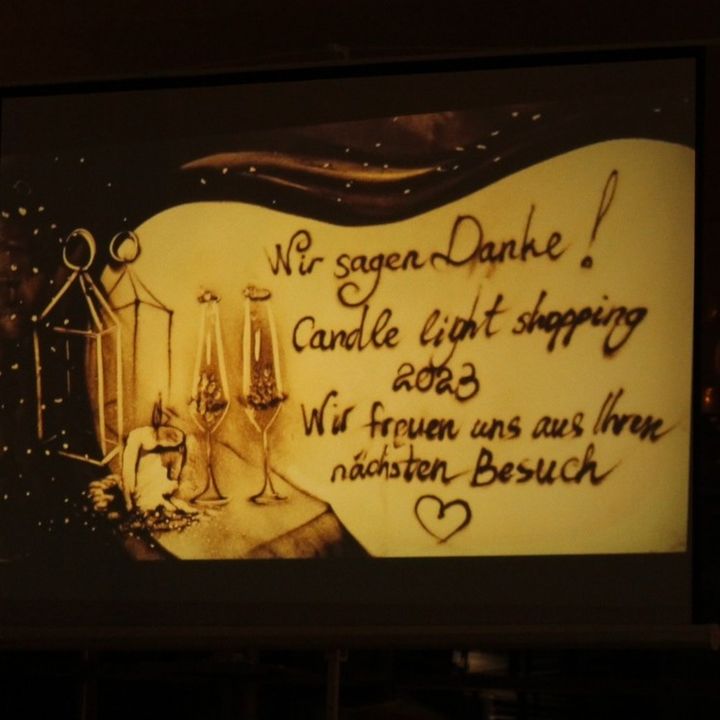 Wir sagen Danke!
Candle light shopping
2023
Wir freuen uns aus Ihren
nächsten Besuch